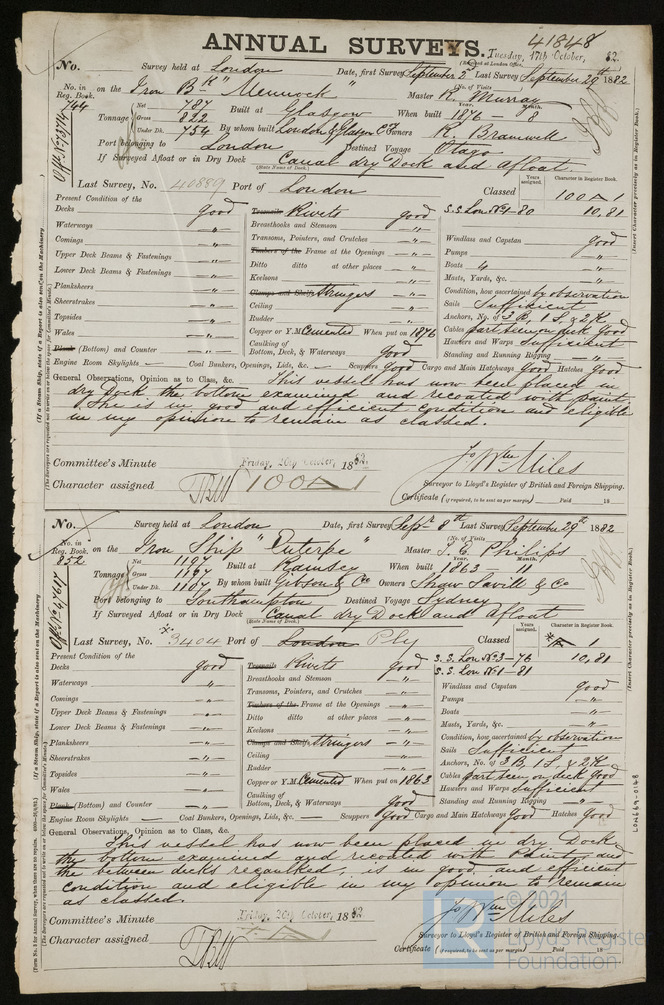 ANNUAL SURVEYS.
41848
Tuesday, 17th October, 82.
(Received at London Office,
No. Survey held at London Date, first Survey September 2d Last Survey September 29th 1882
(No. of Visits )
No. in Reg. Book. on the Iron Bk "Mennock" Master R. Murray
744 Tonnage Net 787 Built at Glasgow When built 1876 - 8
Year. Month.
Gross 822
Under Dk. 754 By whom built London & Glasgow Co Owners R. Bramwell
Port belonging to London Destined Voyage Otago
If Surveyed Afloat or in Dry Dock Canal dry Dock and afloat.
(State Name of Dock.)
Last Survey, No. 40889 Port of London Classed 100A1
Years assigned. Character in Register Book.
Present Condition of the
Decks good Treenails Rivets good S.S. Lon. No1-80 10,81
Waterways " Breasthooks and Stemson "
Comings " Transoms, Pointers, and Crutches " Windlass and Capstan good
Upper Deck Beams & Fastenings " Timbers of the Frame at the Openings " Pumps "
Lower Deck Beams & Fastenings " Ditto ditto at other places " Boats 4 "
Planksheers " Keelsons " Masts, Yards, &c. "
Sheerstrakes " Clamps and Shelfs Stringers " Condition, how ascertained by observation
Topsides " Ceiling " Sails Sufficient
Wales " Rudder " Anchors, No. of 3 B, 1 S, & 2 K
Plank (Bottom) and Counter " Copper or Y.M. Cemented When put on 1876 Cables part seen on deck Good
Caulking of Bottom, Deck, & Waterways Good Hawsers and Warps Sufficient
Standing and Running Rigging "
Engine Room Skylights — Coal Bunkers, Openings, Lids, &c. — Scuppers Good Cargo and Main Hatchways Good Hatches Good
General Observations, Opinion as to Class, &c. This vessel has now been placed in
dry Dock the bottom examined and recoated with paint.
She is in good and efficient condition and eligible
in my opinion to remain as classed.
Committee's Minute Friday, 20th October, 1882.
Character assigned 100A1
Jo Wm Miles
Surveyor to Lloyd's Register of British and Foreign Shipping.
Certificate (if required, to be sent as per margin) Paid 18
No. Survey held at London Date, first Survey Septr 8th Last Survey September 29th 1882
(No. of Visits )
No. in Reg. Book. on the Iron Ship "Euterpe" Master T. E. Philips
852 Tonnage Net 1197 Built at Ramsey When built 1863 - 11
Year. Month.
Gross 1197
Under Dk. 1107 By whom built Gibson & Co Owners Shaw Savill & Co
Port belonging to Southampton Destined Voyage Sydney
If Surveyed Afloat or in Dry Dock Canal dry Dock and Afloat
(State Name of Dock.)
Last Survey, No. 3404 Port of London Ply Classed A 1
Years assigned. Character in Register Book.
Present Condition of the
Decks good Treenails Rivets Good S.S. Lon. No3-76 10,81
Waterways " Breasthooks and Stemson " S.S. Lon. No1-81
Comings " Transoms, Pointers, and Crutches " Windlass and Capstan good
Upper Deck Beams & Fastenings " Timbers of the Frame at the Openings " Pumps "
Lower Deck Beams & Fastenings " Ditto ditto at other places " Boats "
Planksheers " Keelsons " Masts, Yards, &c. "
Sheerstrakes " Clamps and Shelfs Stringers " Condition, how ascertained by observation
Topsides " Ceiling " Sails Sufficient
Wales " Rudder " Anchors, No. of 3 B, 1 S, & 2 K
Plank (Bottom) and Counter " Copper or Y.M. Cemented When put on 1863 Cables part seen on deck Good
Caulking of Bottom, Deck, & Waterways Good Hawsers and Warps Sufficient
Standing and Running Rigging "
Engine Room Skylights — Coal Bunkers, Openings, Lids, &c. — Scuppers Good Cargo and Main Hatchways Good Hatches Good
General Observations, Opinion as to Class, &c.
This vessel has now been placed in dry Dock
the bottom examined and recoated with Paint, and
the between decks recaulked, is in good, and efficient
condition and eligible in my opinion to remain
as classed.
Committee's Minute Friday, 20th October, 1882
Character assigned
Jo Wm Miles
Surveyor to Lloyd's Register of British and Foreign Shipping.
Certificate (if required, to be sent as per margin) Paid 18
(Insert Character precisely as in Register Book.)
(Insert Character precisely as in Register Book.)
LON669-0148
© 2021
Lloyd's Register
Foundation